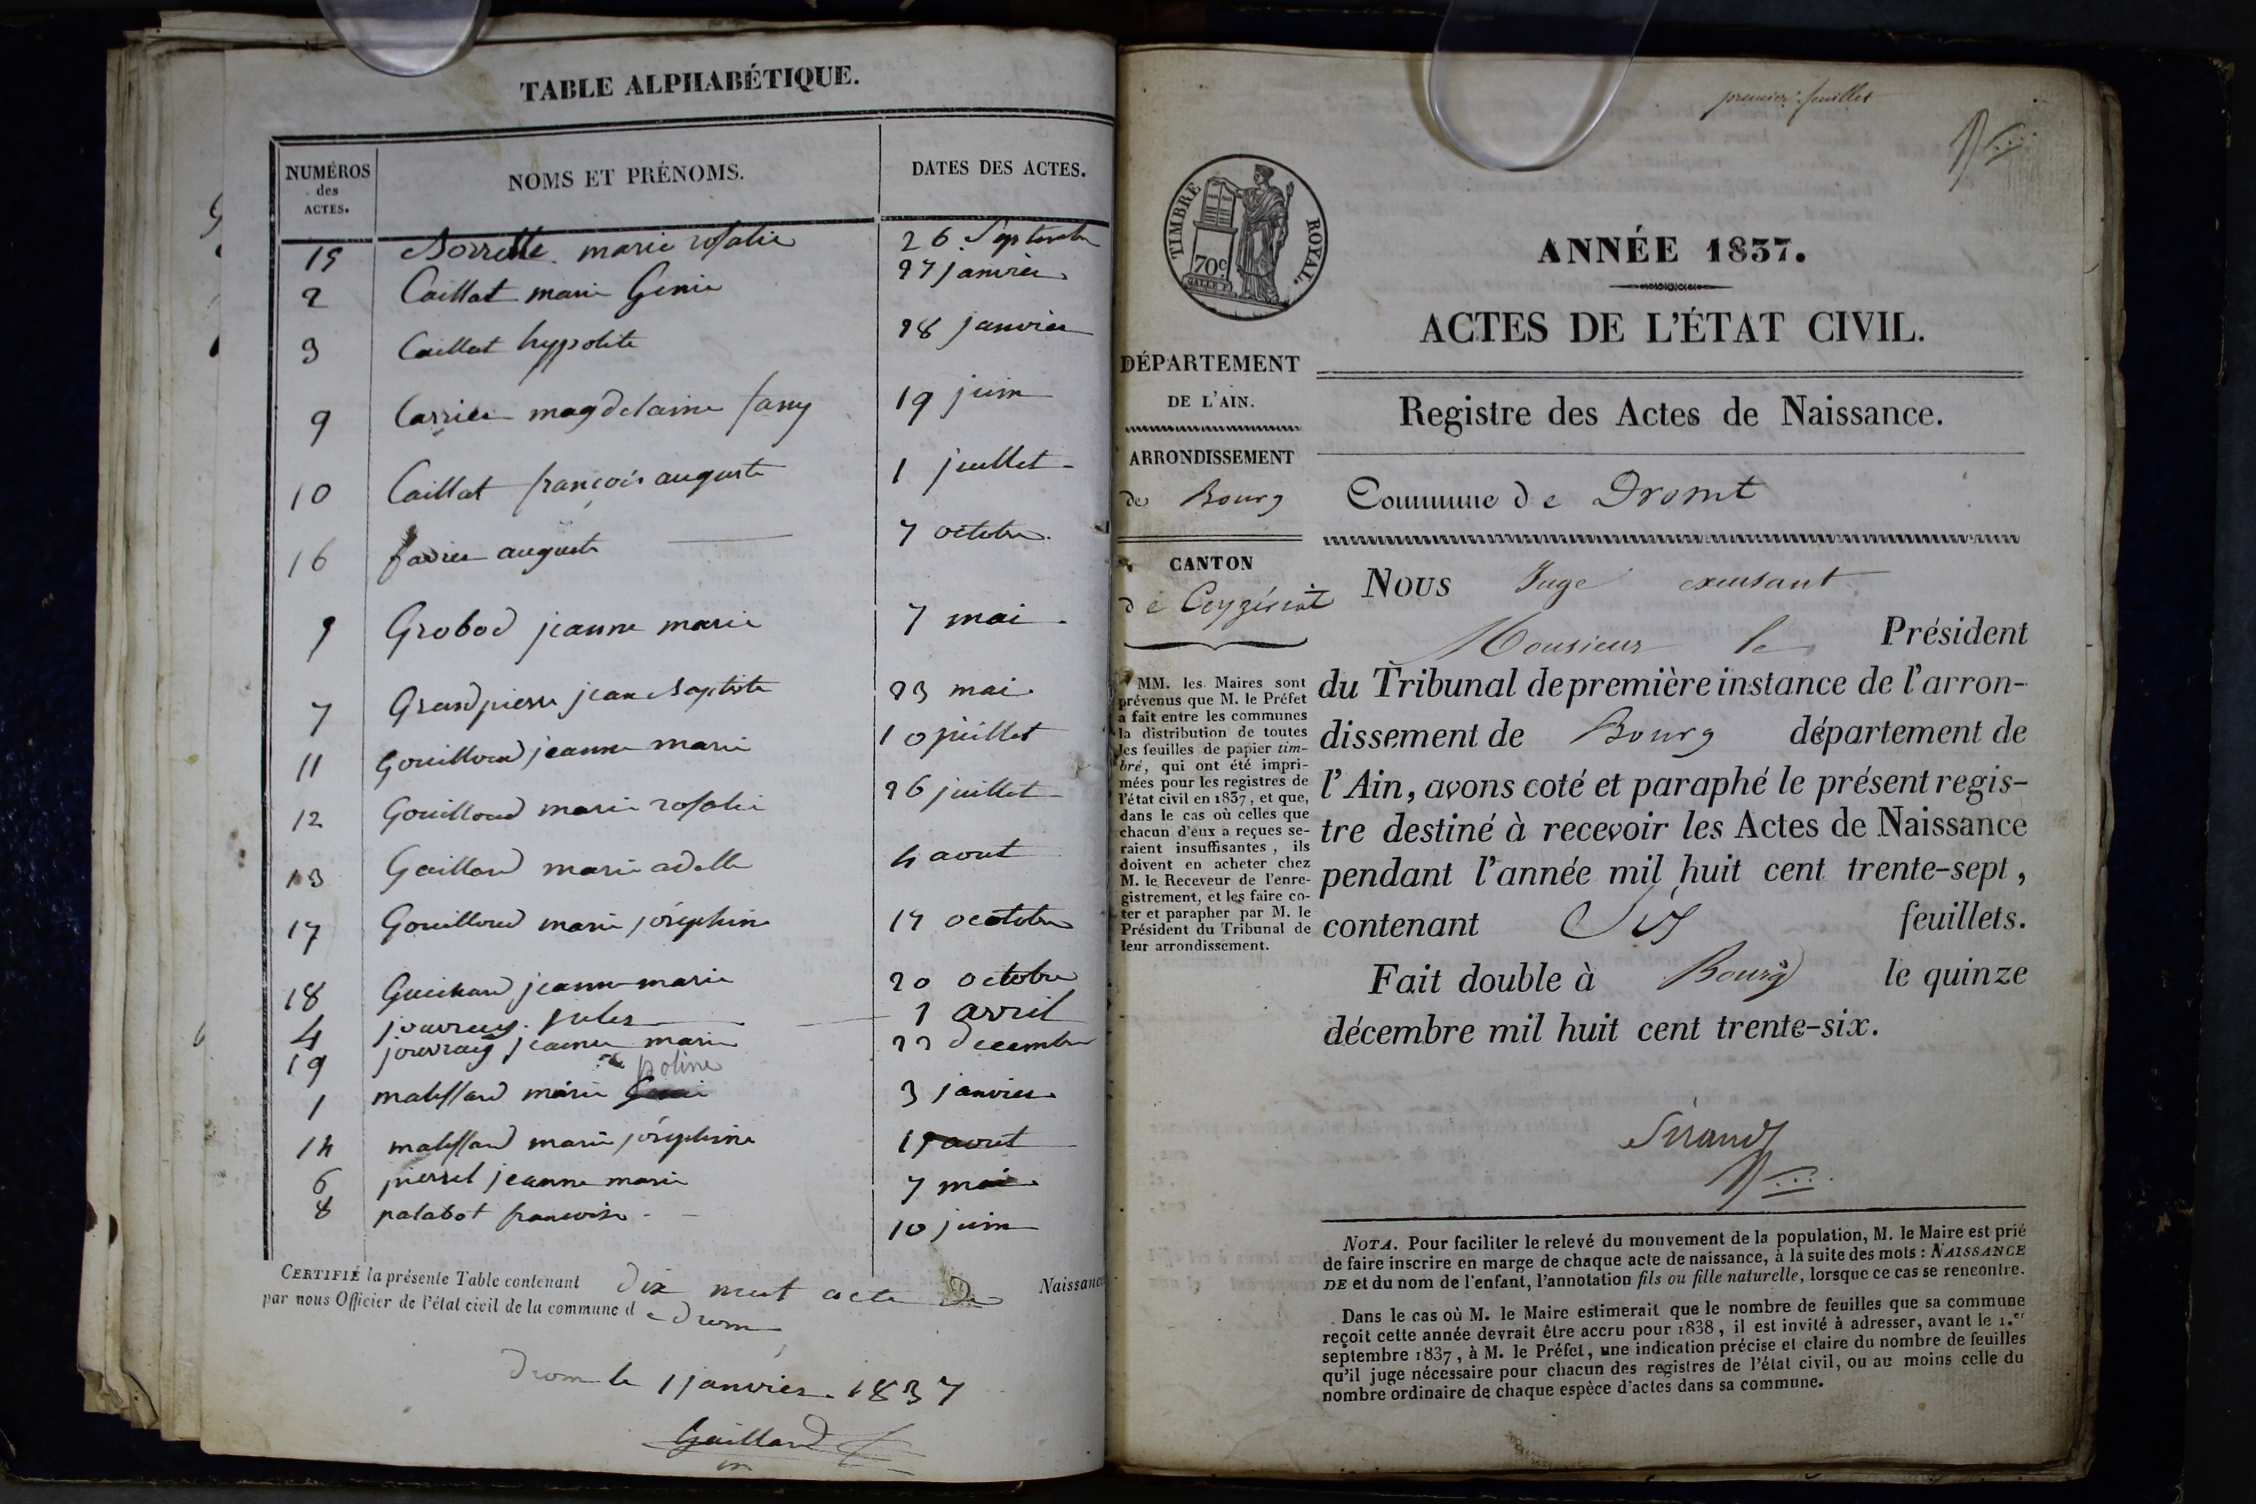 TABLE ALPHABÉTIQUE.
NUMÉROS des ACTES. NOMS ET PRÉNOMS. DATES DES ACTES.
15 Borrette marie rosalie 26 Septembre
2 Caillat marie Genie 27 janvier
3 Caillat hyppolite 28 janvier
9 Carrier magdelaine fany 19 juin
10 Caillat françois auguste 1 juillet
16 favier auguste 7 octobre
5 Grobod jeanne marie 7 mai
7 Grandpierre jean Baptiste 23 mai
11 Gouilloud jeanne marie 10 juillet
12 Gouilloud marie rosalie 26 juillet
13 Gaillard marie adelle 4 aout
17 Gouilloud marie joséphine 17 octobre
18 Guichard jeanne marie 20 octobre
4 jouvray jules 1 avril
19 jouvray jeanne marie 22 decembre
poline
1 matissard marie 3 janvier
14 matissard marie joséphine aout
6 pierrel jeanne marie 7 mai
8 palabot francoise 10 juin
CERTIFIÉ la présente Table contenant dix neuf acte de Naissance
par nous Officier de l'état civil de la commune de drom
drom le 1 janvier 1837
Gaillard
premier feuillet
TIMBRE ROYAL.
70c
ANNÉE 1837.
ACTES DE L'ÉTAT CIVIL.
DÉPARTEMENT
DE L'AIN.
ARRONDISSEMENT
de Bourg
CANTON
de Ceyzériat
MM. les Maires sont
prévenus que M. le Préfet
a fait entre les communes
la distribution de toutes
les feuilles de papier tim-
bré, qui ont été impri-
mées pour les registres de
l'état civil en 1837, et que,
dans le cas où celles que
chacun d'eux a reçues se-
raient insuffisantes, ils
doivent en acheter chez
M. le Receveur de l'enre-
gistrement, et les faire co-
ter et parapher par M. le
Président du Tribunal de
leur arrondissement.
Registre des Actes de Naissance.
Commune de Dromt
NOUS Juge excusant
Monsieur le Président
du Tribunal de première instance de l'arron-
dissement de Bourg département de
l'Ain, avons coté et paraphé le présent regis-
tre destiné à recevoir les Actes de Naissance
pendant l'année mil huit cent trente-sept,
contenant Six feuillets.
Fait double à Bourg le quinze
décembre mil huit cent trente-six.
Sirand
NOTA. Pour faciliter le relevé du mouvement de la population, M. le Maire est prié
de faire inscrire en marge de chaque acte de naissance, à la suite des mots : NAISSANCE
DE et du nom de l'enfant, l'annotation fils ou fille naturelle, lorsque ce cas se rencontre.
Dans le cas où M. le Maire estimerait que le nombre de feuilles que sa commune
reçoit cette année devrait être accru pour 1838, il est invité à adresser, avant le 1.er
septembre 1837, à M. le Préfet, une indication précise et claire du nombre de feuilles
qu'il juge nécessaire pour chacun des registres de l'état civil, ou au moins celle du
nombre ordinaire de chaque espèce d'actes dans sa commune.